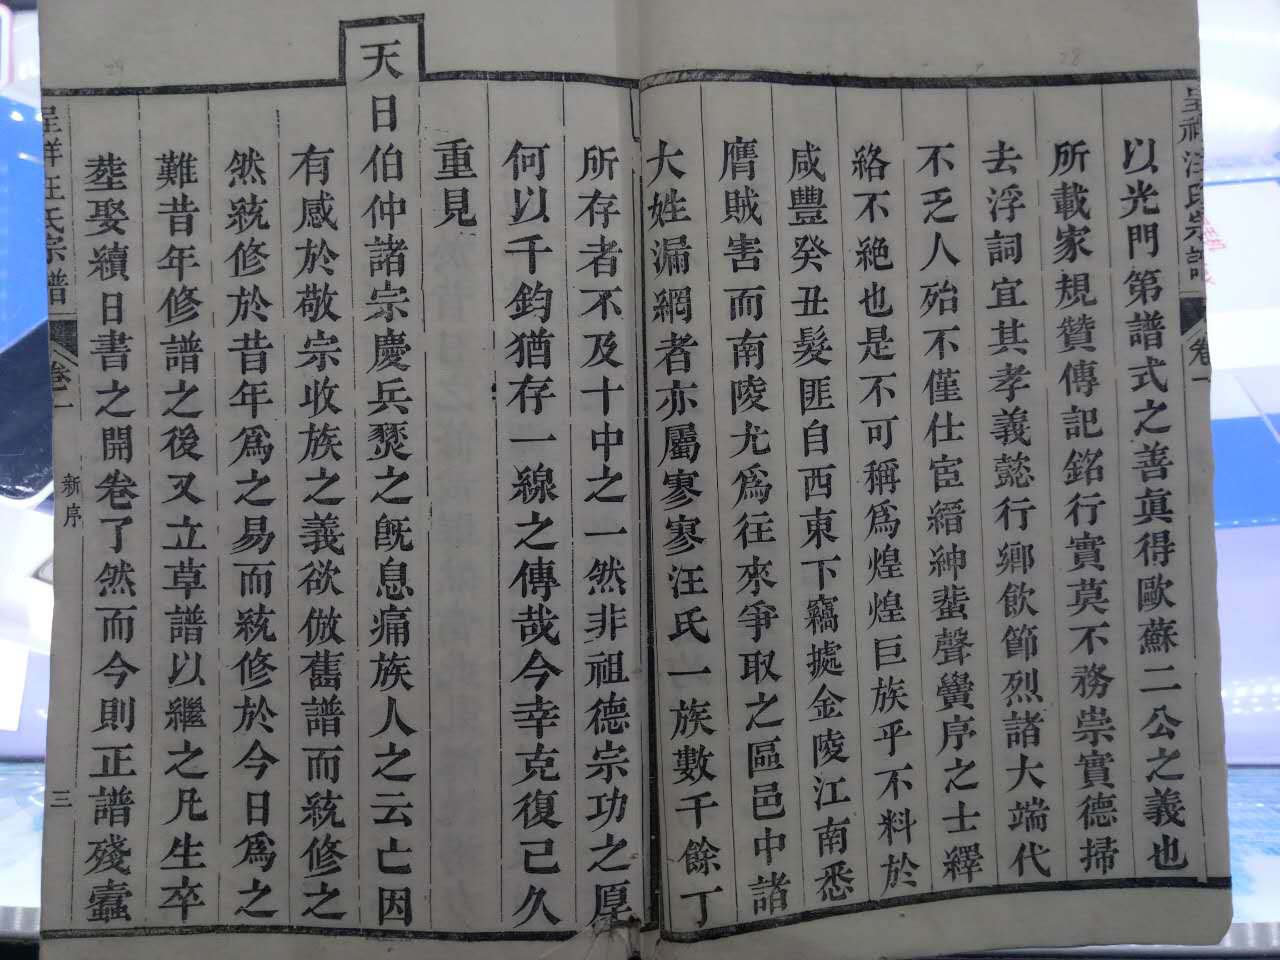 以光門第譜式之善眞得歐蘇二公之義也
所載家規贊傳記銘行實莫不務崇實德掃
去浮詞宜其孝義懿行鄉飲節烈諸大端代
不乏人殆不僅仕宦縉紳蜚聲黌序之士繹
絡不絶也是不可稱爲煌煌巨族乎不料於
咸豐癸丑髮匪自西東下竊據金陵江南悉
膺賊害而南陵尤爲往來爭取之區邑中諸
大姓漏網者亦屬寥寥汪氏一族數千餘丁
所存者不及十中之一然非祖德宗功之厚
何以千鈞猶存一線之傳哉今幸克復已久
重見
天日伯仲諸宗慶兵燹之旣息痛族人之云亡因
有感於敬宗收族之義欲倣舊譜而統修之
然統修於昔年爲之易而統修於今日爲之
難昔年修譜之後又立草譜以繼之凡生卒
塟娶續日書之開卷了然而今則正譜殘蠹
汪氏宗譜
卷一
新序
三